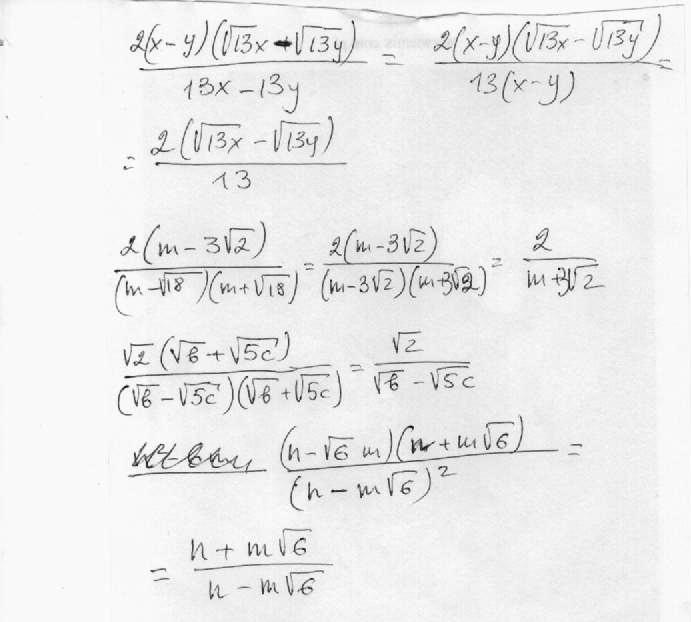 2(x-y)(√13x+√13y) / 13x-13y = 2(x-y)(√13x-√13y) / 13(x-y) =
= 2(√13x-√13y) / 13
2(m-3√2) / (m-√18)(m+√18) = 2(m-3√2) / (m-3√2)(m+3√2) = 2 / m+3√2
√2(√b+√5c) / (√b-√5c)(√b+√5c) = √2 / √b-√5c
(n-√6 m)(n+m√6) / (n-m√6)² =
= n+m√6 / n-m√6